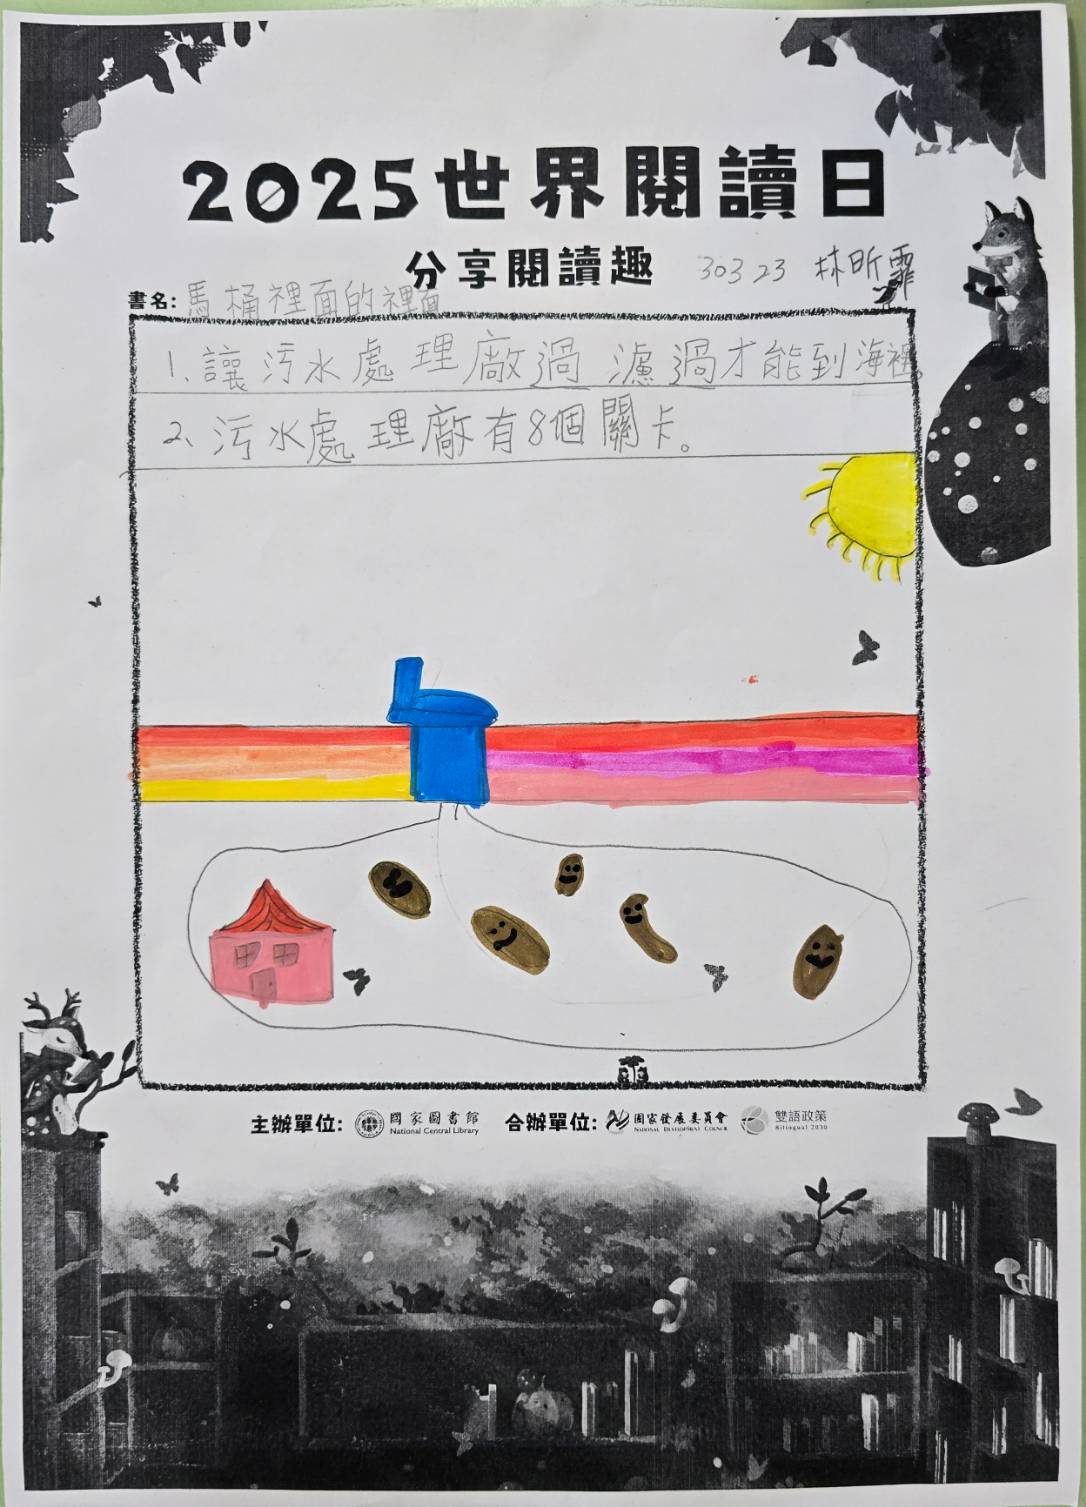 2025世界閱讀日
分享閱讀趣
30323 林昕霏
書名:馬桶裡面的裡面
1、讓污水處理廠過濾過才能到海裡。
2、污水處理廠有8個關卡。
主辦單位: 國家圖書館 National Central Library 合辦單位: 國家發展委員會 NATIONAL DEVELOPMENT COUNCIL 雙語政策 Bilingual 2030